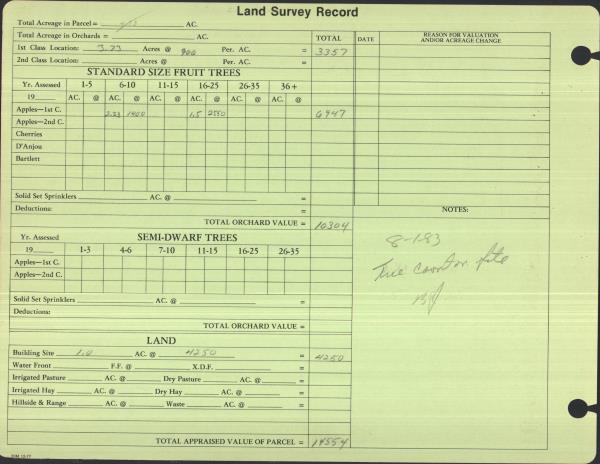 Land Survey Record
Total Acreage in Parcel = AC.
Total Acreage in Orchards = AC. TOTAL DATE REASON FOR VALUATION AND/OR ACREAGE CHANGE
1st Class Location: 3.73 Acres @ 900 Per. AC. = 3357
2nd Class Location: Acres @ Per. AC. =
STANDARD SIZE FRUIT TREES
Yr. Assessed 1-5 6-10 11-15 16-25 26-35 36+
19 AC. @ AC. @ AC. @ AC. @ AC. @ AC. @
Apples—1st C. 2.23 1400 1.5 2550 6947
Apples—2nd C.
Cherries
D'Anjou
Bartlett
Solid Set Sprinklers AC. @ =
Deductions: =
NOTES:
TOTAL ORCHARD VALUE = 10304
8-1-83
Tree count on file
BJ
SEMI-DWARF TREES
Yr. Assessed 1-3 4-6 7-10 11-15 16-25 26-35
19
Apples—1st C.
Apples—2nd C.
Solid Set Sprinklers AC. @ =
Deductions:
TOTAL ORCHARD VALUE =
LAND
Building Site 1.0 AC. @ 4250 = 4250
Water Front F.F. @ X.D.F. =
Irrigated Pasture AC. @ Dry Pasture AC. @ =
Irrigated Hay AC. @ Dry Hay AC. @ =
Hillside & Range AC. @ Waste AC. @ =
TOTAL APPRAISED VALUE OF PARCEL = 14554